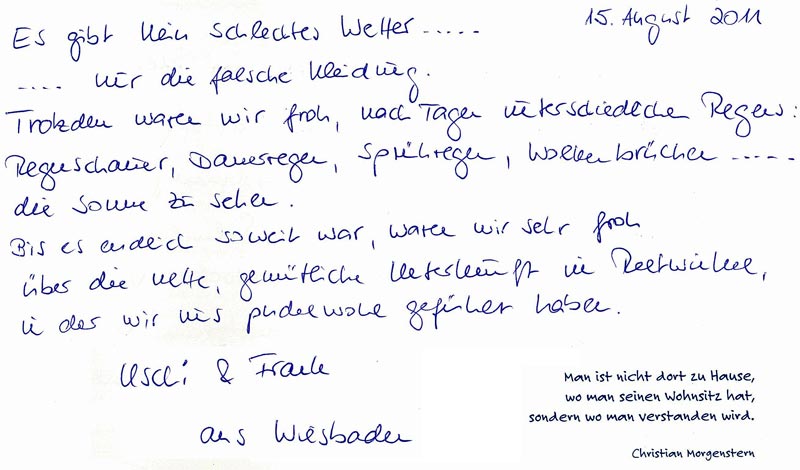 15. August 2011
Es gibt kein schlechtes Wetter .....
.... nur die falsche Kleidung.
Trotzdem waren wir froh, nach Tagen unterschiedlichen Regens:
Regenschauer, Dauerregen, Sprühregen, Wolkenbrüchen .....
die Sonne zu sehen.
Bis es endlich soweit war, waren wir sehr froh
über die nette, gemütliche Unterkunft in Reetwinkel,
in der wir uns pudelwohl gefühlt haben.
Uschi & Frank
aus Wiesbaden
Man ist nicht dort zu Hause,
wo man seinen Wohnsitz hat,
sondern wo man verstanden wird.
Christian Morgenstern